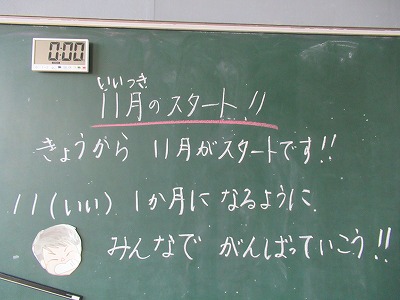 0:00
いいつき
11月のスタート!!
きょうから 11月がスタートです!!
11(いい) 1か月に なるように
みんなで がんばっていこう!!